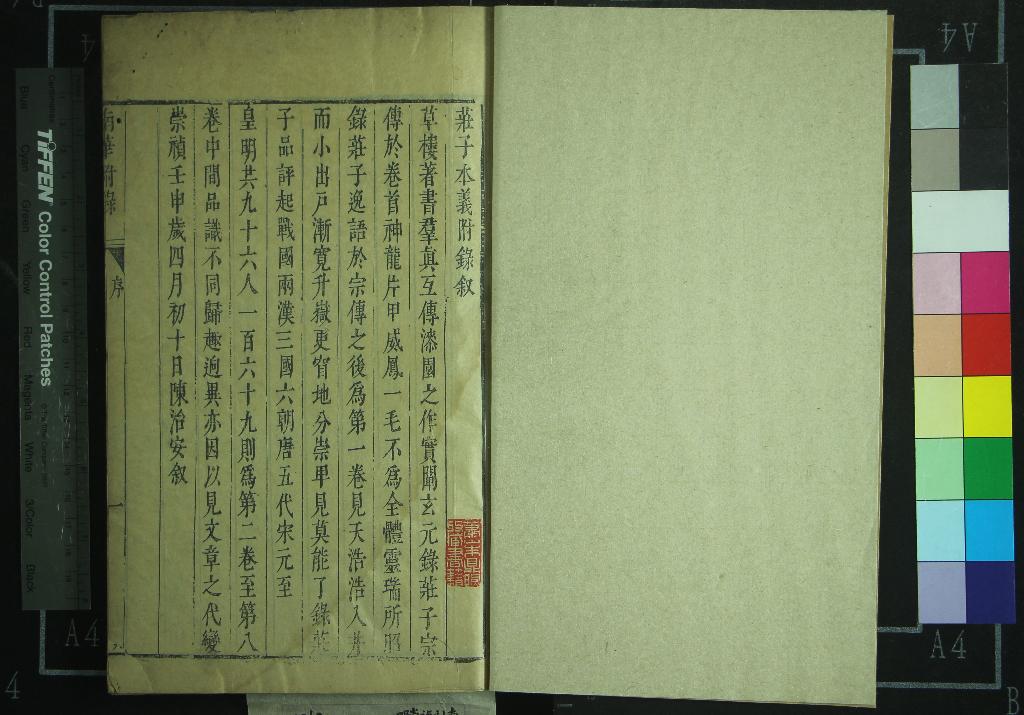 莊子本義附錄叙
草樓著書羣真互傳漆園之作實闡玄元錄莊子宗
傳於卷首神龍片甲威鳳一毛不爲全體靈瑞所昭
錄莊子逸語於宗傳之後爲第一卷見天浩浩入井
而小出戸漸寛升嶽更窅地分崇卑見莫能了錄莊
子品評起戰國兩漢三國六朝唐五代宋元至
皇明共九十六人一百六十九則爲第二卷至第八
卷中間品識不同歸趣逈異亦因以見文章之代變
崇禎壬申歲四月初十日陳治安叙
南華附錄
序
一
TIFFEN Color Control Patches
Centimetres
Blue Cyan Green Yellow Red Magenta White 3/Color Black
A4
A4
A4
4
4
B